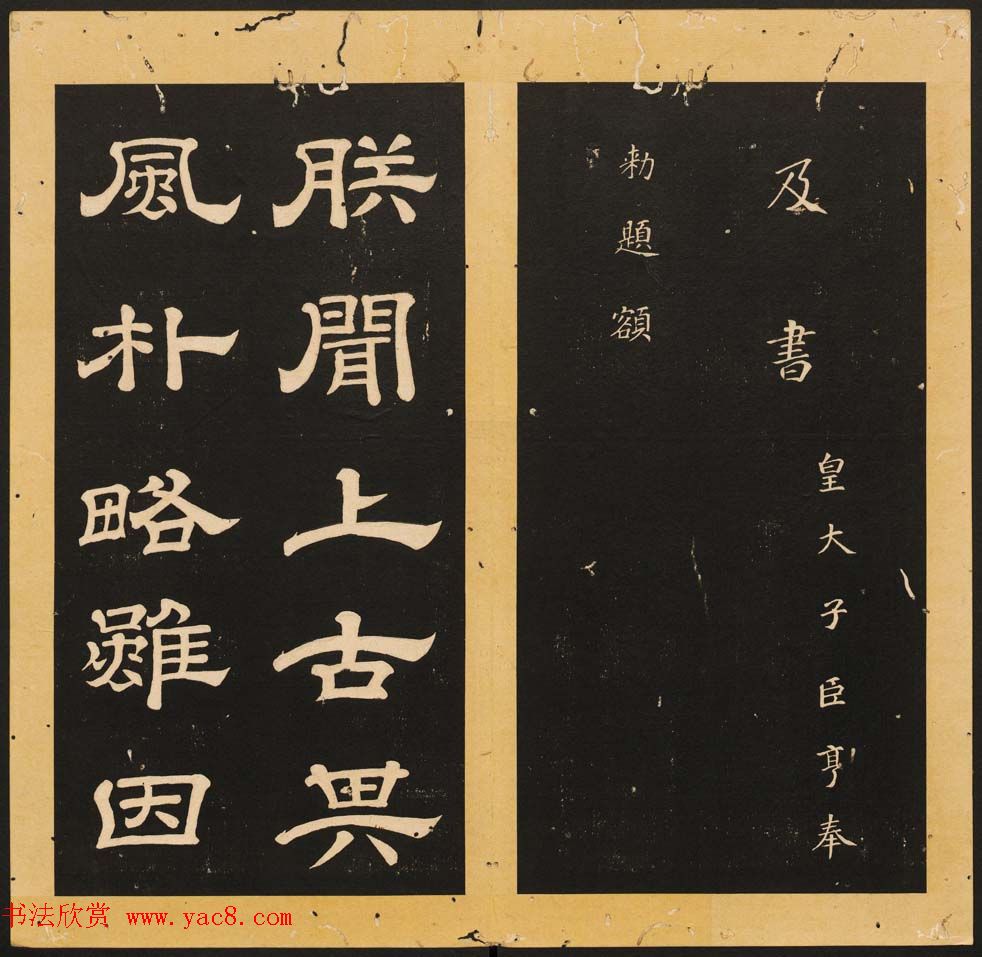 及書
皇大子臣亨奉
勑題額
朕聞上古其
風朴略雖因
书法欣赏 www.yac8.com